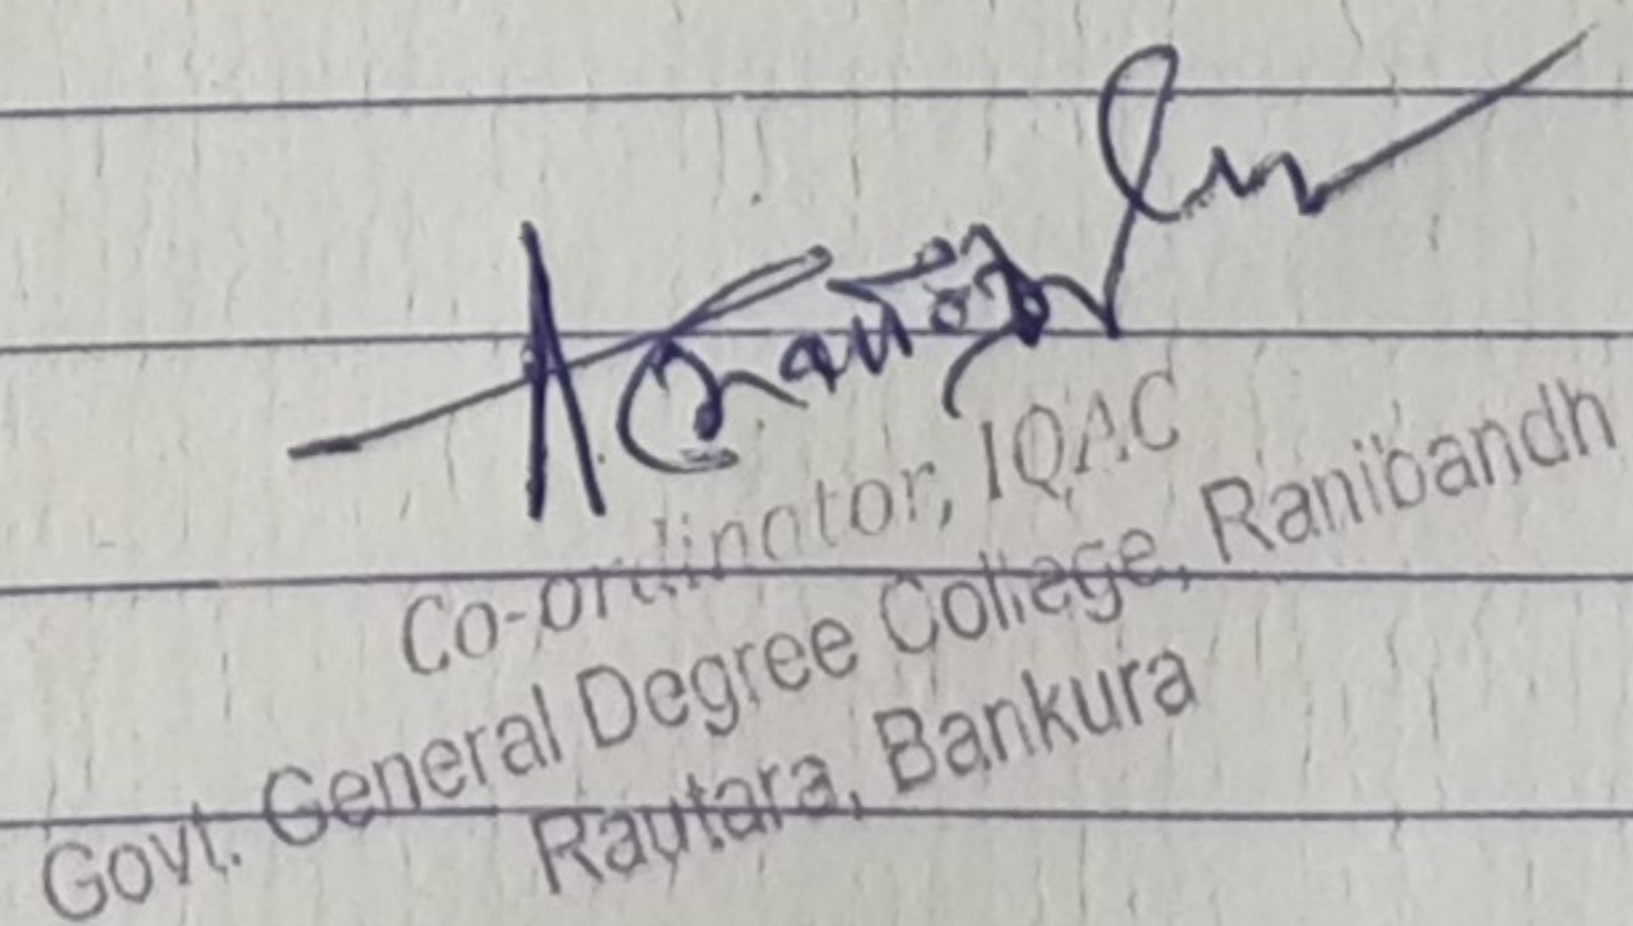 Co-ordinator, IQAC
Govt. General Degree College, Ranibandh
Rautara, Bankura